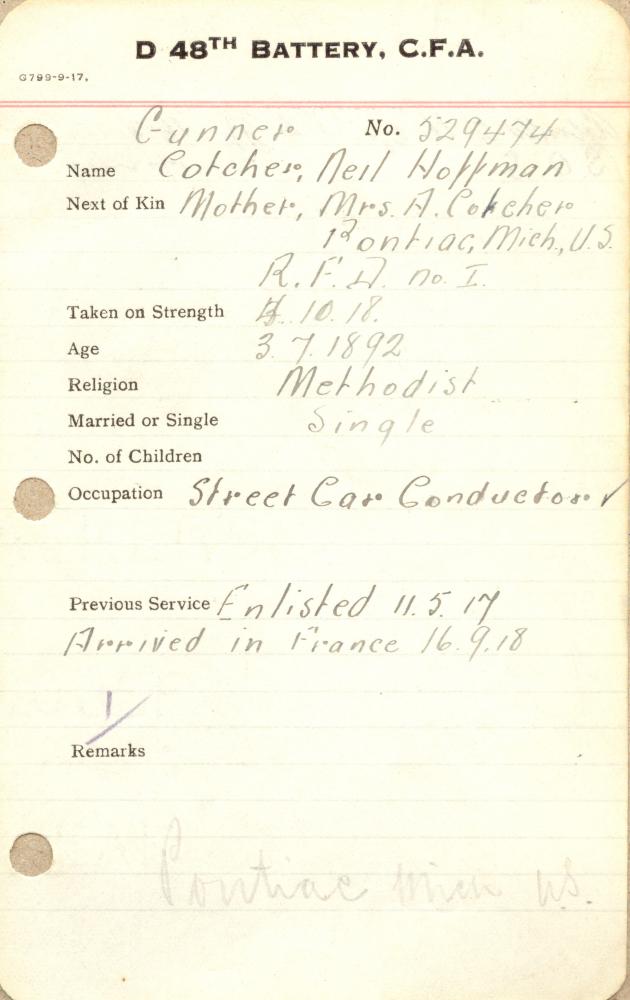 D 48TH BATTERY, C.F.A.
G799-9-17.
Gunner No. 529474
Name Cotcher, Neil Hoffman
Next of Kin Mother, Mrs. A. Cotcher
Pontiac, Mich., U.S.
R.F.D. no. I.
Taken on Strength 4.10.18.
Age 3.7.1892
Religion Methodist
Married or Single Single
No. of Children
Occupation Street Car Conductor ✓
Previous Service Enlisted 11.5.17
Arrived in France 16.9.18
Remarks
Pontiac Mich U.S.